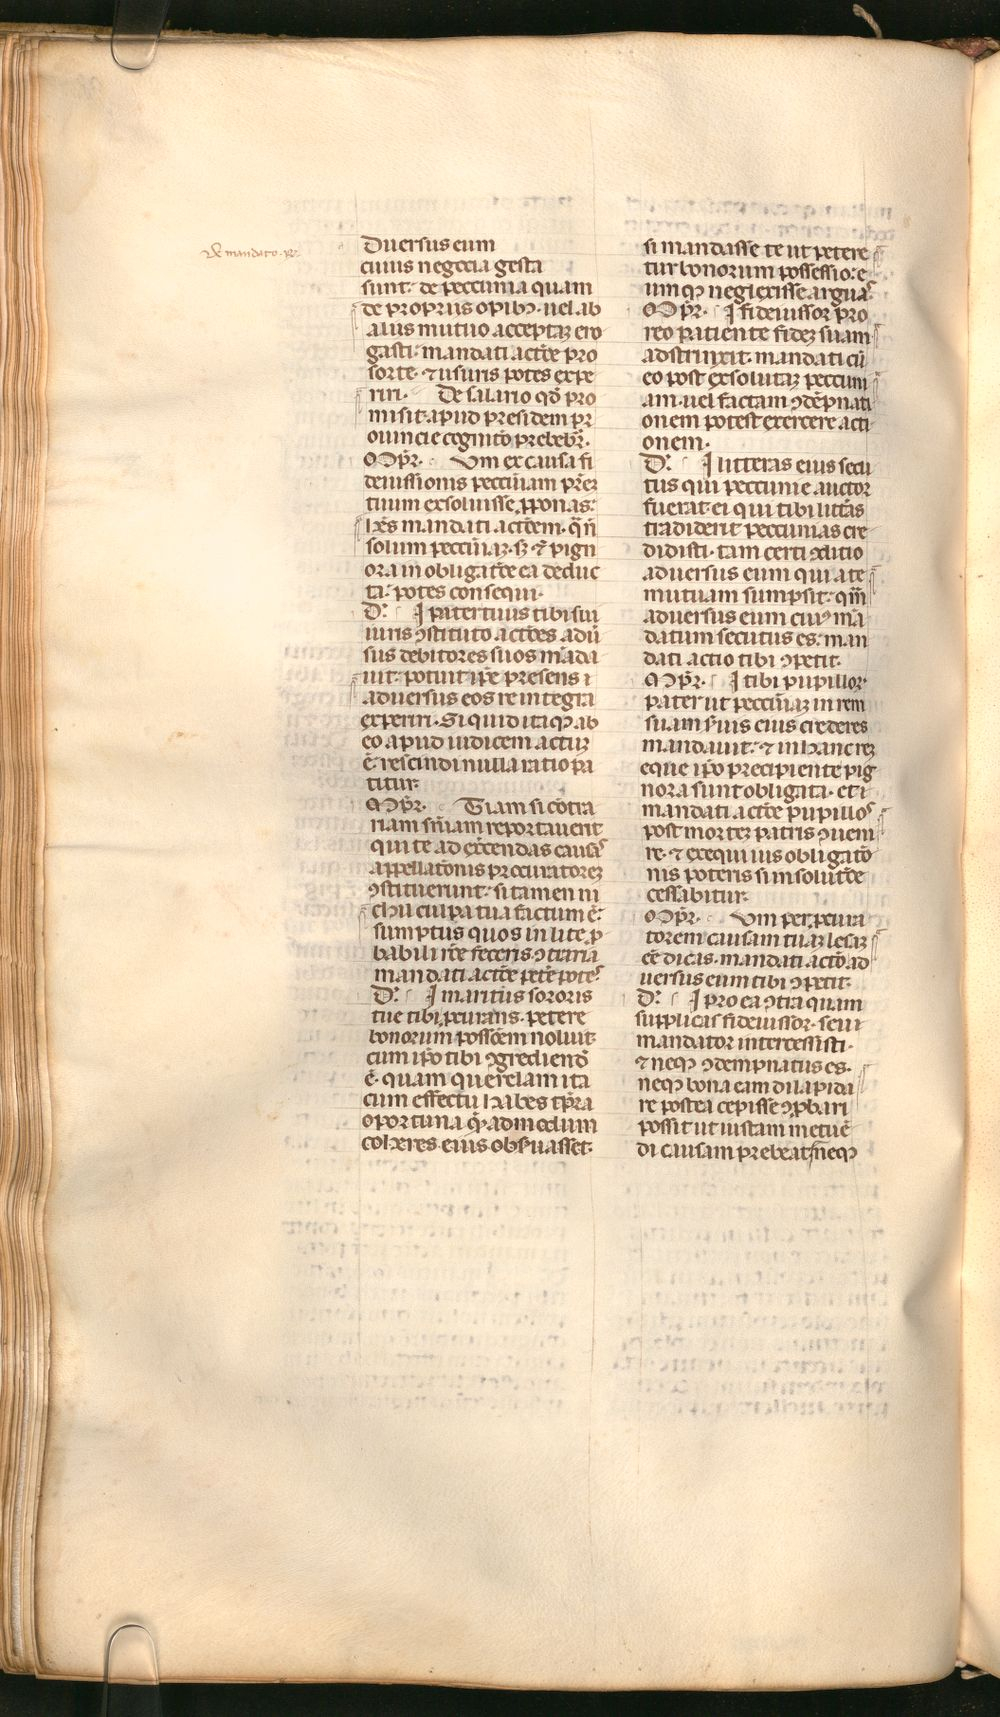 De mandato. R.
Duersus eum
cuius negocia gesta
sunt: de peccunia quam
de propriis opibꝫ. uel ab
aliis mutuo acceptaꝫ ero
gasti: mandati actōe pro
sorte. ⁊ usuris potes expe
riri. De salario qđ pro
misit. apud presidem pr
ouincie cognitō prebebr̄.
Im̄pr̄. Vm ex causa fi
deiussionis peccūiam
tuum exsoluisse ꝓponas:
solum peccūiaꝫ. sꝫ ⁊ pign
ora in obligatōe ea deduc
ta: potes consequi.
D'. I pater tuus tibi sui
iuris ꝯstituto actōes adū
sus debitores suos māda
uit: potuit ip̄e presens ⁊
aduersus eos re integra
experiri. Si quid itaqꝫ ab
eo apud iudicem actuꝫ
ē: rescindi nulla ratio pa
titur.
Im̄pr̄. Tiam si cōtra
riam sn̄iam reportauerit
qui te ad exercendas causas
appellatōnis procuratoreꝫ
ꝯstituerunt: si tamen ni
chil culpa tua factum ē:
sumptus quos in lite ꝓ
babili rōe feceris. ꝯtraria
mandati actōe petē potes.
D'. I maritus sororis
tue tibi ꝓcurans. petere
bonorum possōem noluit:
cum ip̄o tibi ꝯgrediendō
ē. quam querelam ita
cum effectu habes
oportuna
coheres eius obseruasset.
si mandasse te ut petere
tur bonorum possessio: e
umqꝫ neglexisse arguas.
Im̄pr̄. I fideiussor pro
reo patiente fideꝫ suam
adstrinxit: mandati cū
eo post exsolutaꝫ peccuni
am. uel factam ꝯdēpnati
onem potest exercere acti
onem.
D'. I litteras eius secu
tus qui peccunie auctor
fuerat. ei qui tibi litt̄as
tradiderit peccunias cre
didisti. tam certi ꝯditio
aduersus eum qui a te
mutuam sumpsit: qm̄
aduersus eum cuiꝰ mā
datum secutus es: man
dati actio tibi ꝯpetit.
Im̄pr̄. I tibi pupilloꝝ
pater ut peccūiaꝫ in rem
suam seruis eius crederes
mandauit: ⁊ in hanc reꝫ
eque ip̄o precipiente pig
nora sunt obligata. et ⁊
mandati actōe pupillos
post morteꝫ patris ꝯueni
re. ⁊ exequi ius obligatō
nis poteris si in solutōe
cessabitur.
Im̄pr̄. Vm per ꝓcura
torem causam tuaꝫ lesaꝫ
eē dicas. mandati actō ad
uersus eum tibi ꝯpetit.
D'. I pro ea ꝯtra quam
supplicas fideiussor. seu
mandator intercessisti.
⁊ neqꝫ ꝯdempnatus es.
neqꝫ bona eam dilapida
re postea cepisse ꝯprobari
possit ut iustam metuē
di causam prebeat: neqꝫ